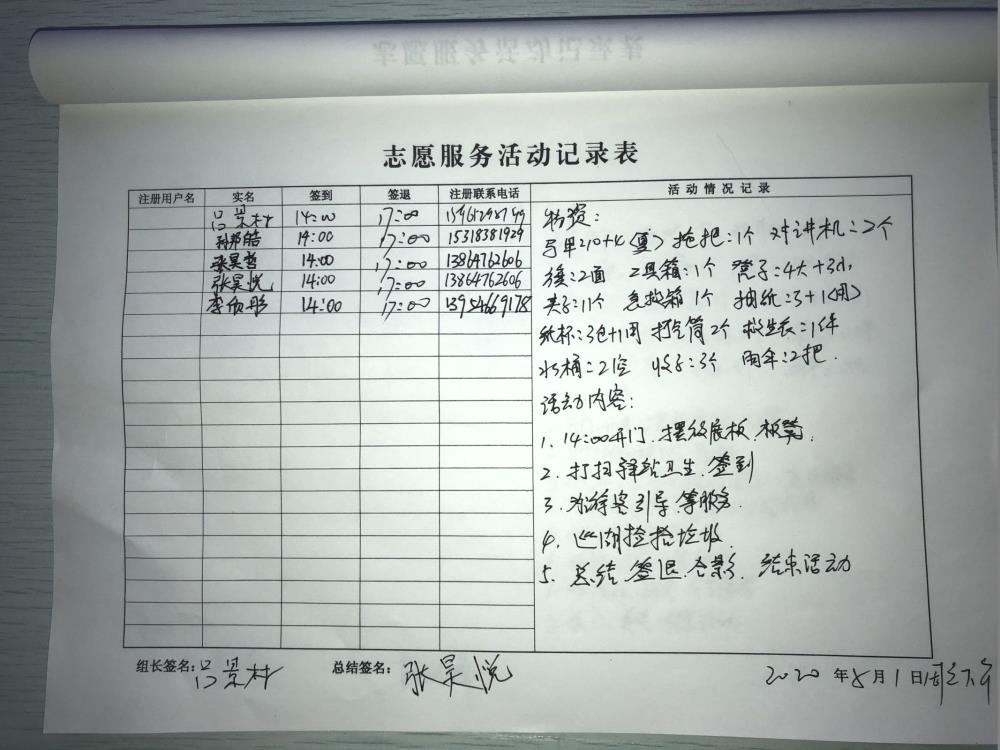 志愿服务活动记录表
注册用户名 实名 签到 签退 注册联系电话 活动情况记录
吕景村 14:00 17:00
孙邦皓 14:00 17:00 15318381929
张昊哲 14:00 17:00 13864762606
张昊悦 14:00 17:00 13864762606
李欣彤 14:00 17:00 13954669178
物资:
马甲210+4(夏) 拖把:1个 对讲机:2个
2面 工具箱:1个 凳子:4大+3小
夹子:11个 急救箱1个 抽纸:3+1(用)
纸杯:3包+1用 打气筒2个 救生衣:1件
水桶:2 3个 雨伞:2把.
活动内容:
1. 14:00开门.摆放展板.板凳.
2. 打扫驿站卫生.签到
3. 为游客引导等服务.
4. 巡湖捡拾垃圾.
5. 总结.签退.合影.结束活动
组长签名:吕景村 总结签名:张昊悦 2020年8月1日周六下午